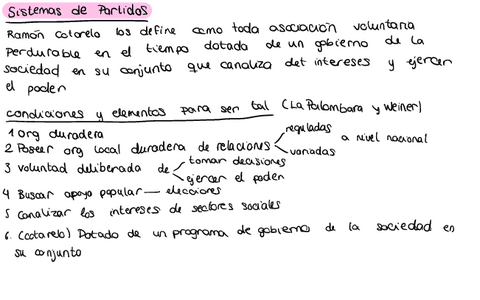 Sistemas de Partidos
Ramón Cotarelo los define como toda asociación voluntaria
perdurable en el tiempo dotada de un gobierno de la
sociedad en su conjunto que canaliza det intereses y ejercer
el poder
condiciones y elementos para ser tal (La Palombara y Weiner)
1 org duradera
2 Poseer org local duradera de relaciones reguladas a nivel nacional
variadas
3 voluntad deliberada de tomar decisiones
ejercer el poder
4 Buscar apoyo popular — elecciones
5 Canalizar los intereses de sectores sociales
6. (cotarelo) Dotado de un programa de gobierno de la sociedad en
su conjunto